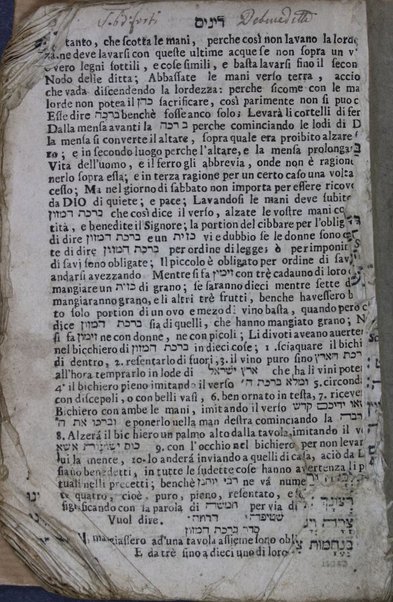 דינים
Debenedetti
tanto, che scotta le mani, perche così non lavano la lorde
ma ne deve lavarsi con queste ultime acque se non sopra un v
overo legni sottili, e cose simili, e basta lavarsi sino il secon
Nodo delle ditta; Abbassate le mani verso terra, accio
che vada discendendo la lordezza: perche sicome con le ma
lorde non potea il כהן sacrificare, così parimente non si puo c
Esse dire ברכה benchè fosse anco solo: Levarà li cortelli di fer
Dalla mensa avanti la ברכה perche cominciando le lodi di D
la mensa si converte il altare, sopra quale era proibito alzare
ro; e in secondo luogo perche l'altare, e la mensa prolongar
Vita dell'uomo, e il ferro gli abbrevia, onde non è ragione
nerlo sopra essa; e in terza ragione per un certo caso una volta
cesso; Ma nel giorno di sabbato non importa per essere ricove
da DIO di quiete; e pace; Lavandosi le mani deve subito
ברכת המזון che così dice il verso, alzate le vostre mani co
tità, e benedite il Signore; la portion del cibbare per l'oblig
di dire ברכת המזון e un כזית vi e dubbio se le donne sono c
te di dire ברכת המזון per ordine di legge ò per imponir
di savj sono obligate; Il piccolo è obligato per ordine di sav
andarsi avezzando Mentre si fa זימון con trè cadauno di loro
mangiare un כזית di grano; se saranno dieci mentre sette d
mangiaranno grano, e li altri trè frutti, benche havessero b
to solo portion di un ovo e mezo di vino basta, quando però c
dice ברכת המזון sia di quelli, che hanno mangiato grano; N
si fa זימון ne con donne, ne con picoli; Li divoti aveano averter
nel bicchiero di ברכת המזון in dieci cose; 1. sciaquare il bichi
di dentro, 2. resentarlo di fuori, 3. il vino puro sino ברכת הארץ
all'hora temprarlo in lode di ארץ ישראל che ha li vini poter
4. il bichiero pieno imitando il verso ומלא ברכת ה' 5. circond
con discepoli, o con belli vasi, 6. ben ornato in testa, 7. riceve
Bichiero con ambe le mani, imitando il verso שאו ידיכם קדש
וברכו את ה' e ponerlo nella man destra cominciando la
8. Alzerà il bicchiero un palmo alto dalla tavola, imitando il v
כוס ישועות אשא 9. con l'occhio nel bichiero per non levar
lui la mente, 10. lo anderà inviando a quelli di casa, acciò da L
siano benedetti, in tutte le sudette cose hanno avertenza li p
tuali nelli precetti; benchè רבי יוחנן ne vá nume
te quatro, cioè puro, pieno, resentato, e
significando con la parola di חמשה per via di
Vuol dire.
סדר ברכת המזון
mangiassero ad'una tavola assieme sono obl
E da trè sino a dieci uno di loro